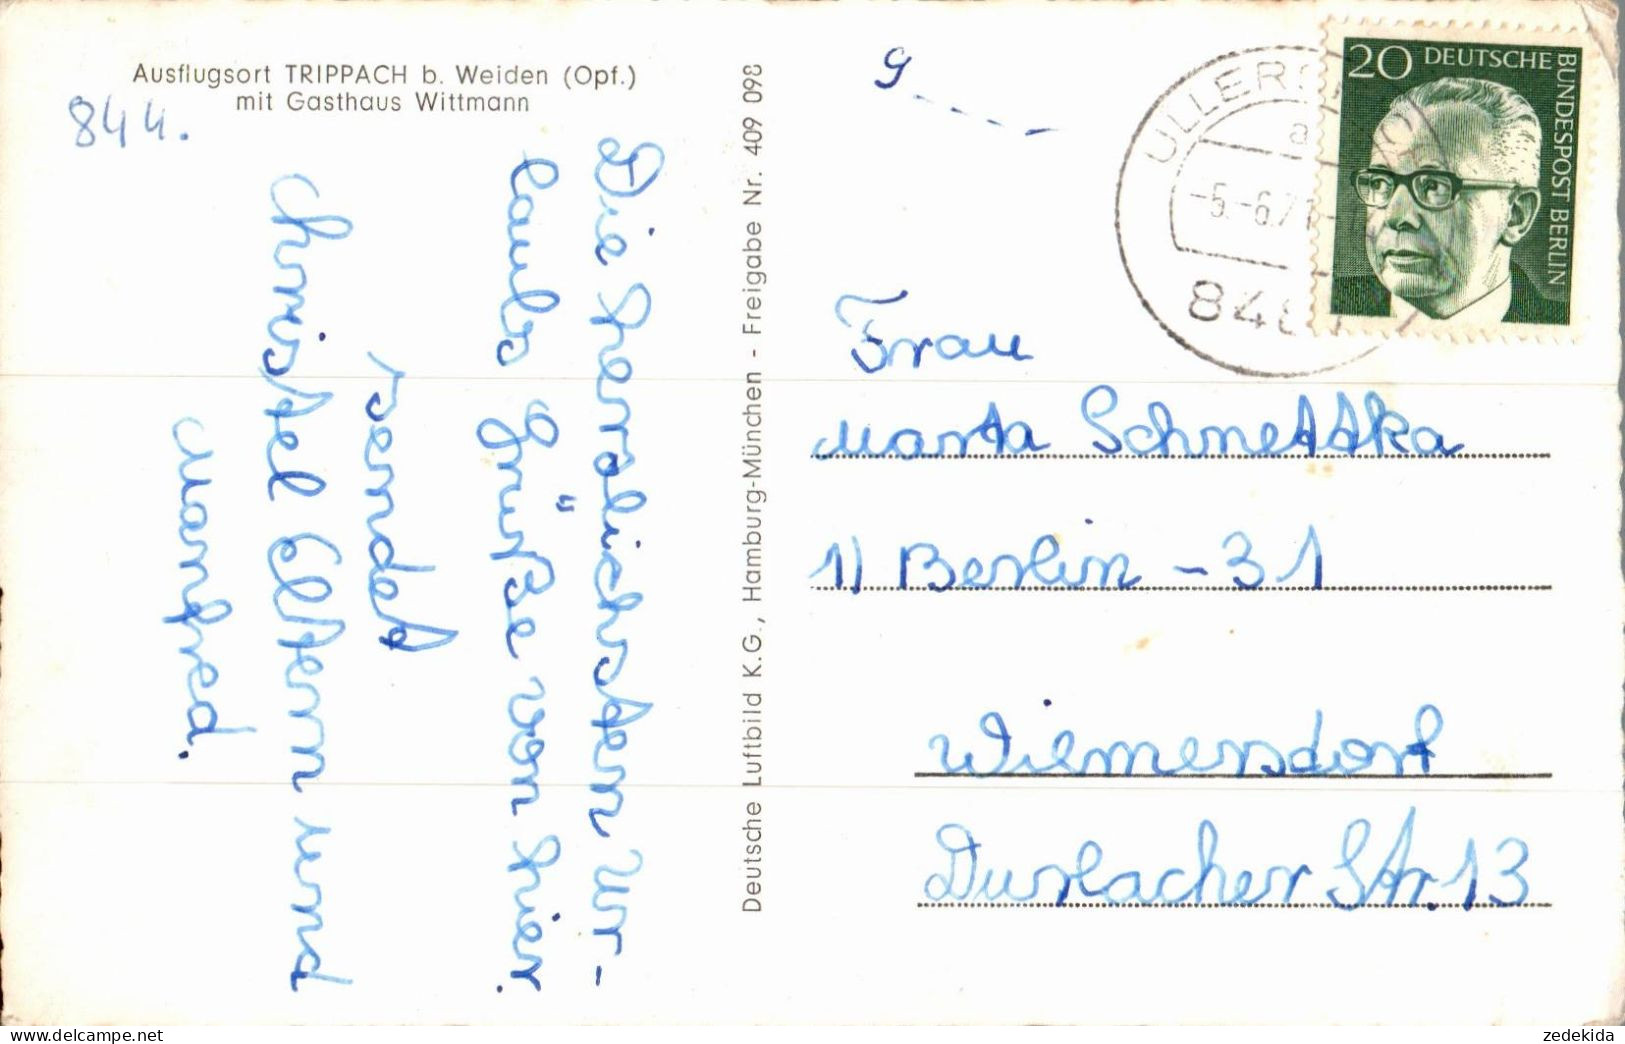 Ausflugsort TRIPPACH b. Weiden (Opf.)
mit Gasthaus Wittmann
844.
Die herzlichsten Ur-
laubs Grüße von hier.
sendet
Christel Eltern und
Manfred.
Deutsche Luftbild K.G., Hamburg-München - Freigabe Nr. 409 098
9
20 DEUTSCHE
BUNDESPOST BERLIN
-5.-6.71-
Frau
Marta Schnettka
1) Berlin - 31
Wilmersdorf
Durlacher Str. 13
zedekida